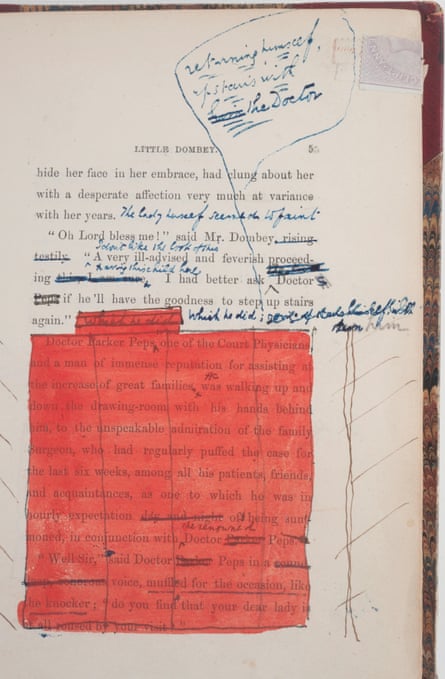 returning himself,
upstairs with
him the Doctor
LITTLE DOMBEY. 5
hide her face in her embrace, had clung about her
with a desperate affection very much at variance
with her years. The lady herself seemed to faint
"Oh Lord bless me!" said Mr. Dombey, rising
I don't like the look of this
testily. "A very ill-advised and feverish proceed-
ing I had better ask Doctor
Peps if he'll have the goodness to step up stairs
again." which he did Which he did;
Doctor Parker Peps, one of the Court Physicians
and a man of immense reputation for assisting at
the increase of great families, was walking up and
down the drawing-room with his hands behind
him, to the unspeakable admiration of the family
surgeon, who had regularly puffed the case for
the last six weeks, among all his patients, friends,
and acquaintances, as one to which he was in
hourly expectation day and night of being sum-
the renowned
moned, in conjunction with Doctor Parker Peps.
"Well Sir," said Doctor Parker Peps in a
voice, muffled for the occasion, like
the knocker; "do you find that your dear lady is
at all roused by your visit?"